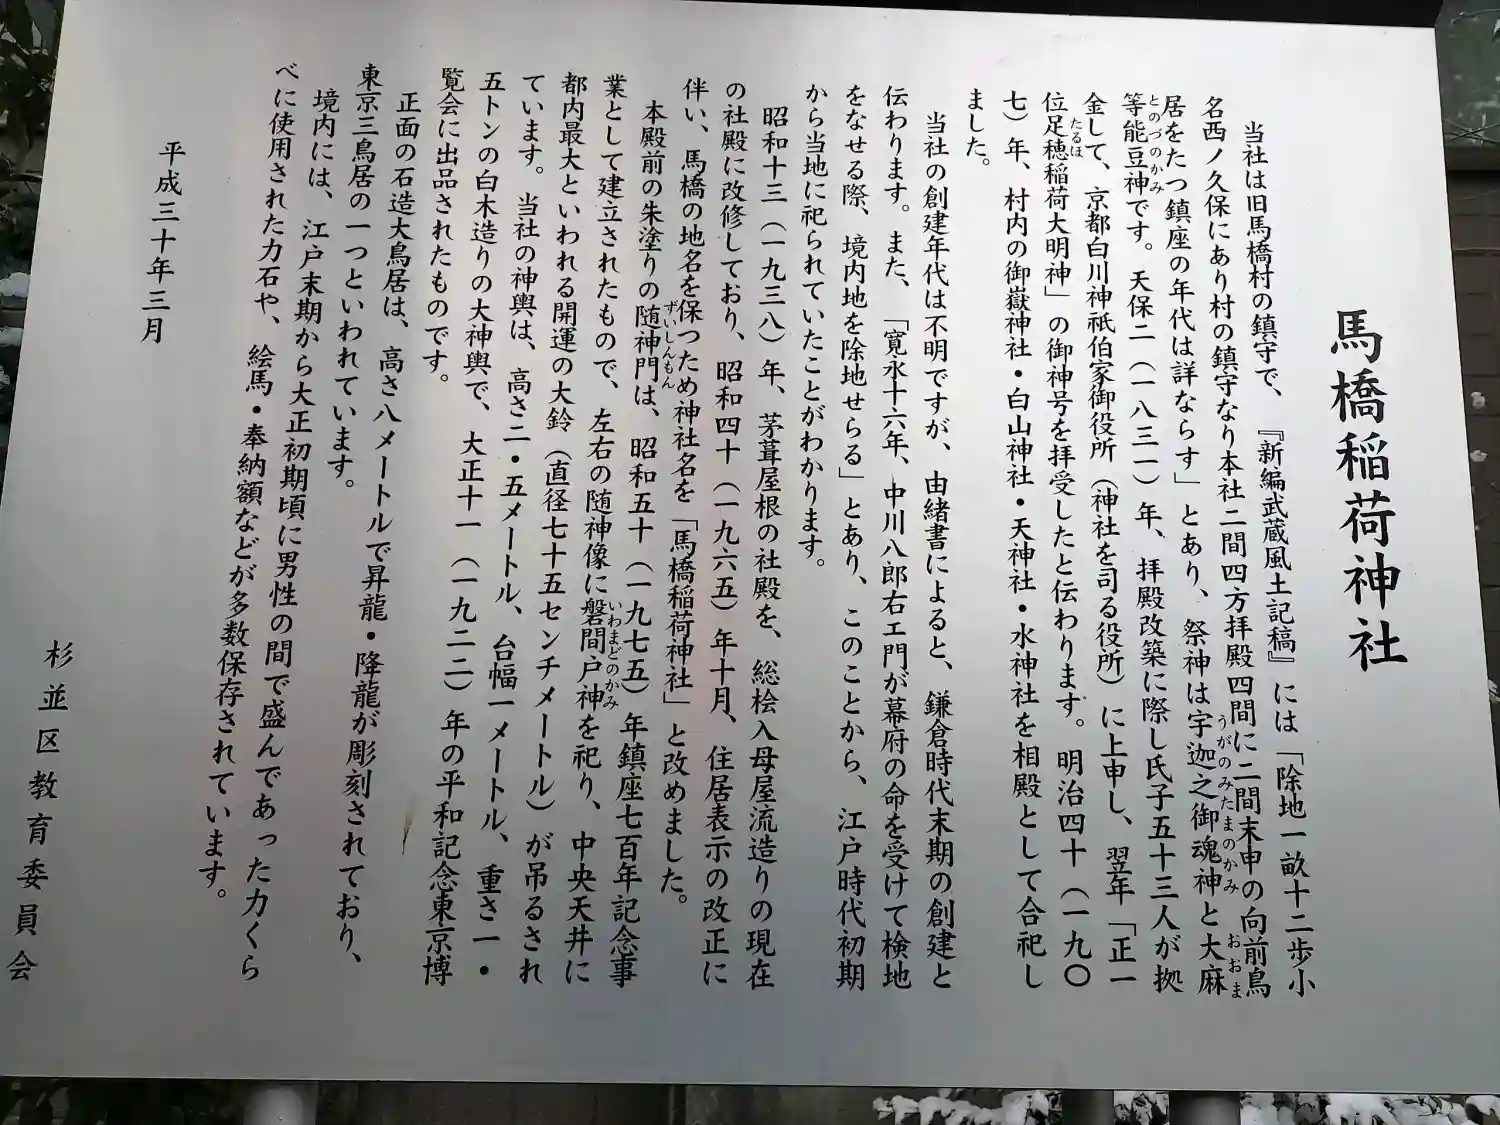 馬橋稲荷神社
当社は旧馬橋村の鎮守で、『新編武蔵風土記稿』には「除地一畝十二歩小
名西ノ久保にあり村の鎮守なり本社二間四方拝殿四間に二間末申の向前鳥
居をたつ鎮座の年代は詳ならす」とあり、祭神は宇迦之御魂神と大麻
うがのみたまのかみ おおま
等能豆神です。天保二(一八三一)年、拝殿改築に際し氏子五十三人が拠
とのづのかみ
金して、京都白川神祇伯家御役所(神社を司る役所)に上申し、翌年「正一
位足穂稲荷大明神」の御神号を拝受したと伝わります。明治四十(一九〇
たるほ
七)年、村内の御嶽神社・白山神社・天神社・水神社を相殿として合祀し
ました。
当社の創建年代は不明ですが、由緒書によると、鎌倉時代末期の創建と
伝わります。また、「寛永十六年、中川八郎右エ門が幕府の命を受けて検地
をなせる際、境内地を除地せらる」とあり、このことから、江戸時代初期
から当地に祀られていたことがわかります。
昭和十三(一九三八)年、茅葺屋根の社殿を、総桧入母屋流造りの現在
の社殿に改修しており、昭和四十(一九六五)年十月、住居表示の改正に
伴い、馬橋の地名を保つため神社名を「馬橋稲荷神社」と改めました。
本殿前の朱塗りの随神門は、昭和五十(一九七五)年鎮座七百年記念事
ずいしんもん
業として建立されたもので、左右の随神像に磐間戸神を祀り、中央天井に
いわまどのかみ
都内最大といわれる開運の大鈴(直径七十五センチメートル)が吊るされ
ています。当社の神輿は、高さ二・五メートル、台幅一メートル、重さ一・
五トンの白木造りの大神輿で、大正十一(一九二二)年の平和記念東京博
覧会に出品されたものです。
正面の石造大鳥居は、高さ八メートルで昇龍・降龍が彫刻されており、
東京三鳥居の一つといわれています。
境内には、江戸末期から大正初期頃に男性の間で盛んであった力くら
べに使用された力石や、絵馬・奉納額などが多数保存されています。
平成三十年三月
杉並区教育委員会